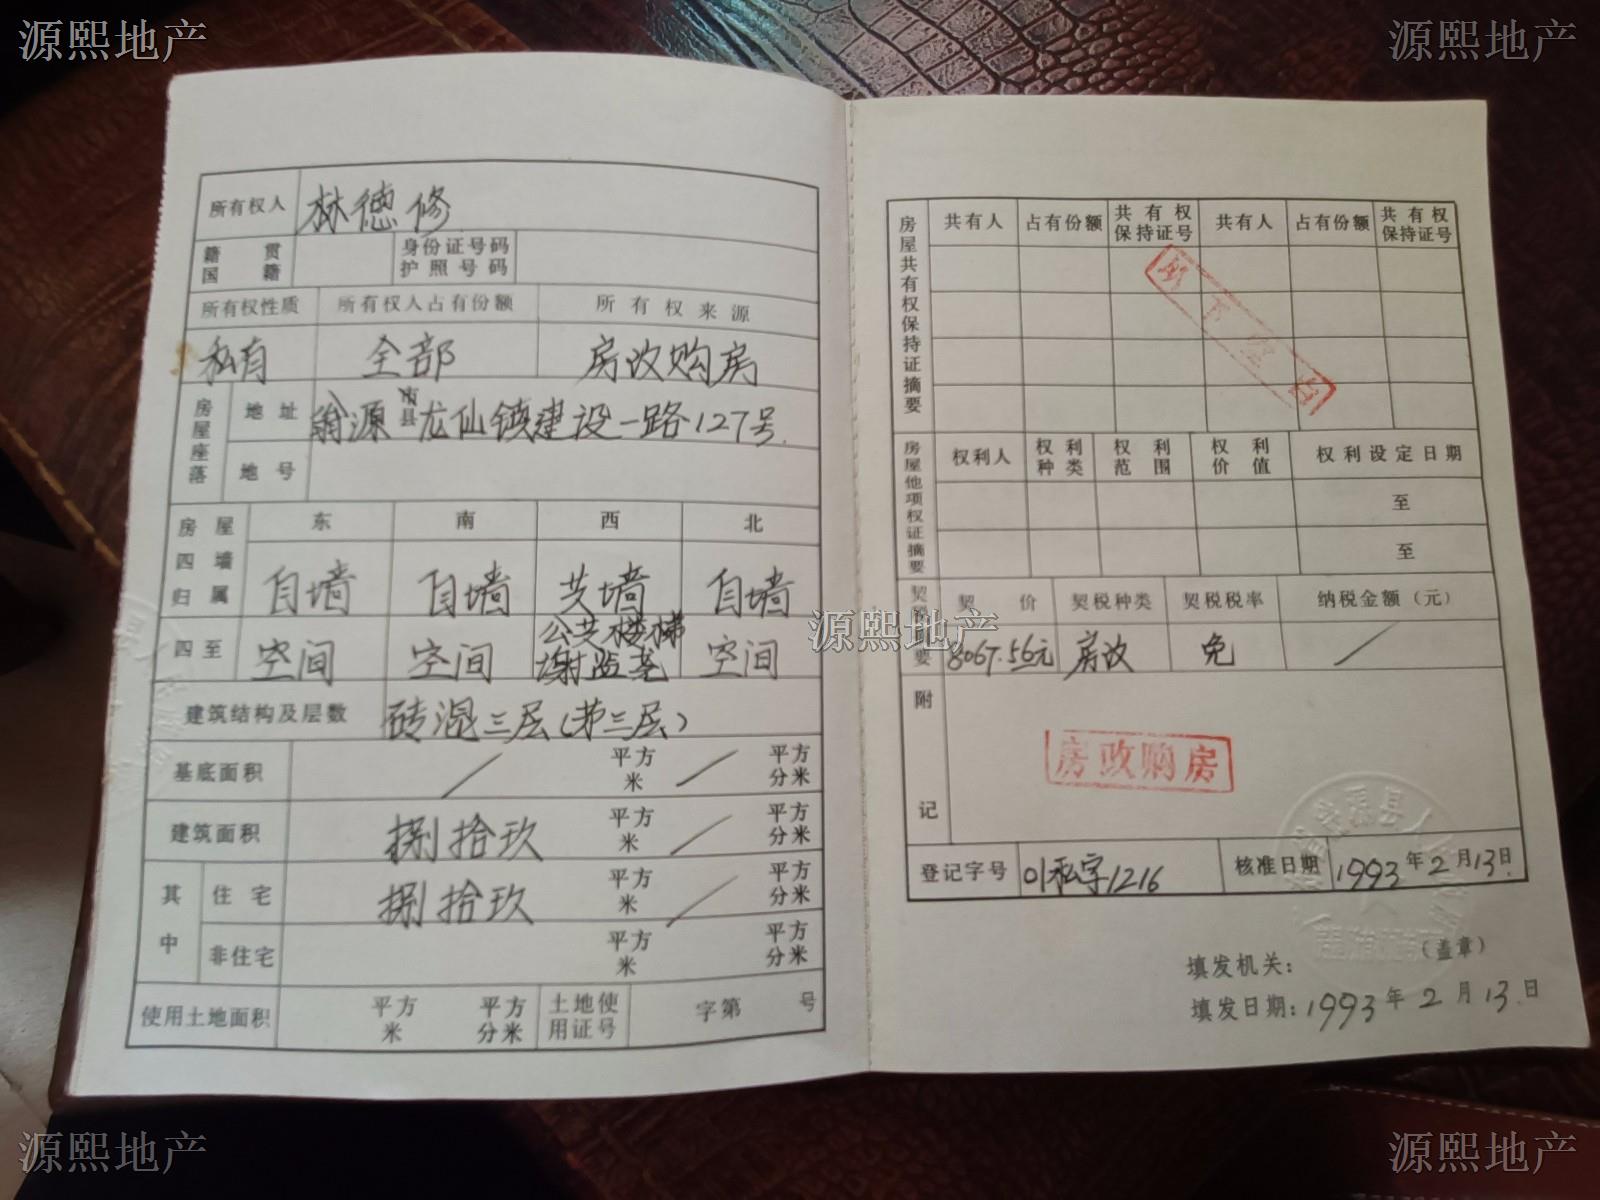 源熙地产
源熙地产
所有权人 林德修
籍贯 国籍 身份证号码 护照号码
所有权性质 所有权人占有份额 所有权来源
私有 全部 房改购房
房屋座落 地址 翁源 市县 龙仙镇建设一路127号
地号
房屋四墙归属 东 南 西 北
自墙 自墙 共墙 自墙
四至 空间 空间 公共楼梯 空间
建筑结构及层数 砖混三层(第三层)
基底面积 / 平方米 / 平方分米
建筑面积 捌拾玖 平方米 / 平方分米
其中 住宅 捌拾玖 平方米 / 平方分米
非住宅 平方米 平方分米
使用土地面积 平方米 平方分米 土地使用证号 字第 号
房屋共有权保持证摘要 共有人 占有份额 共有权保持证号 共有人 占有份额 共有权保持证号
以下空白
房屋他项权证摘要 权利人 权利种类 权利范围 权利价值 权利设定日期
至
至
契 价 契税种类 契税税率 纳税金额(元)
8067.56元 房改 免 /
源熙地产
附记
房改购房
登记字号 01私字1216 核准日期 1993年2月13日
填发机关: (盖章)
填发日期:1993年2月13日
源熙地产
源熙地产